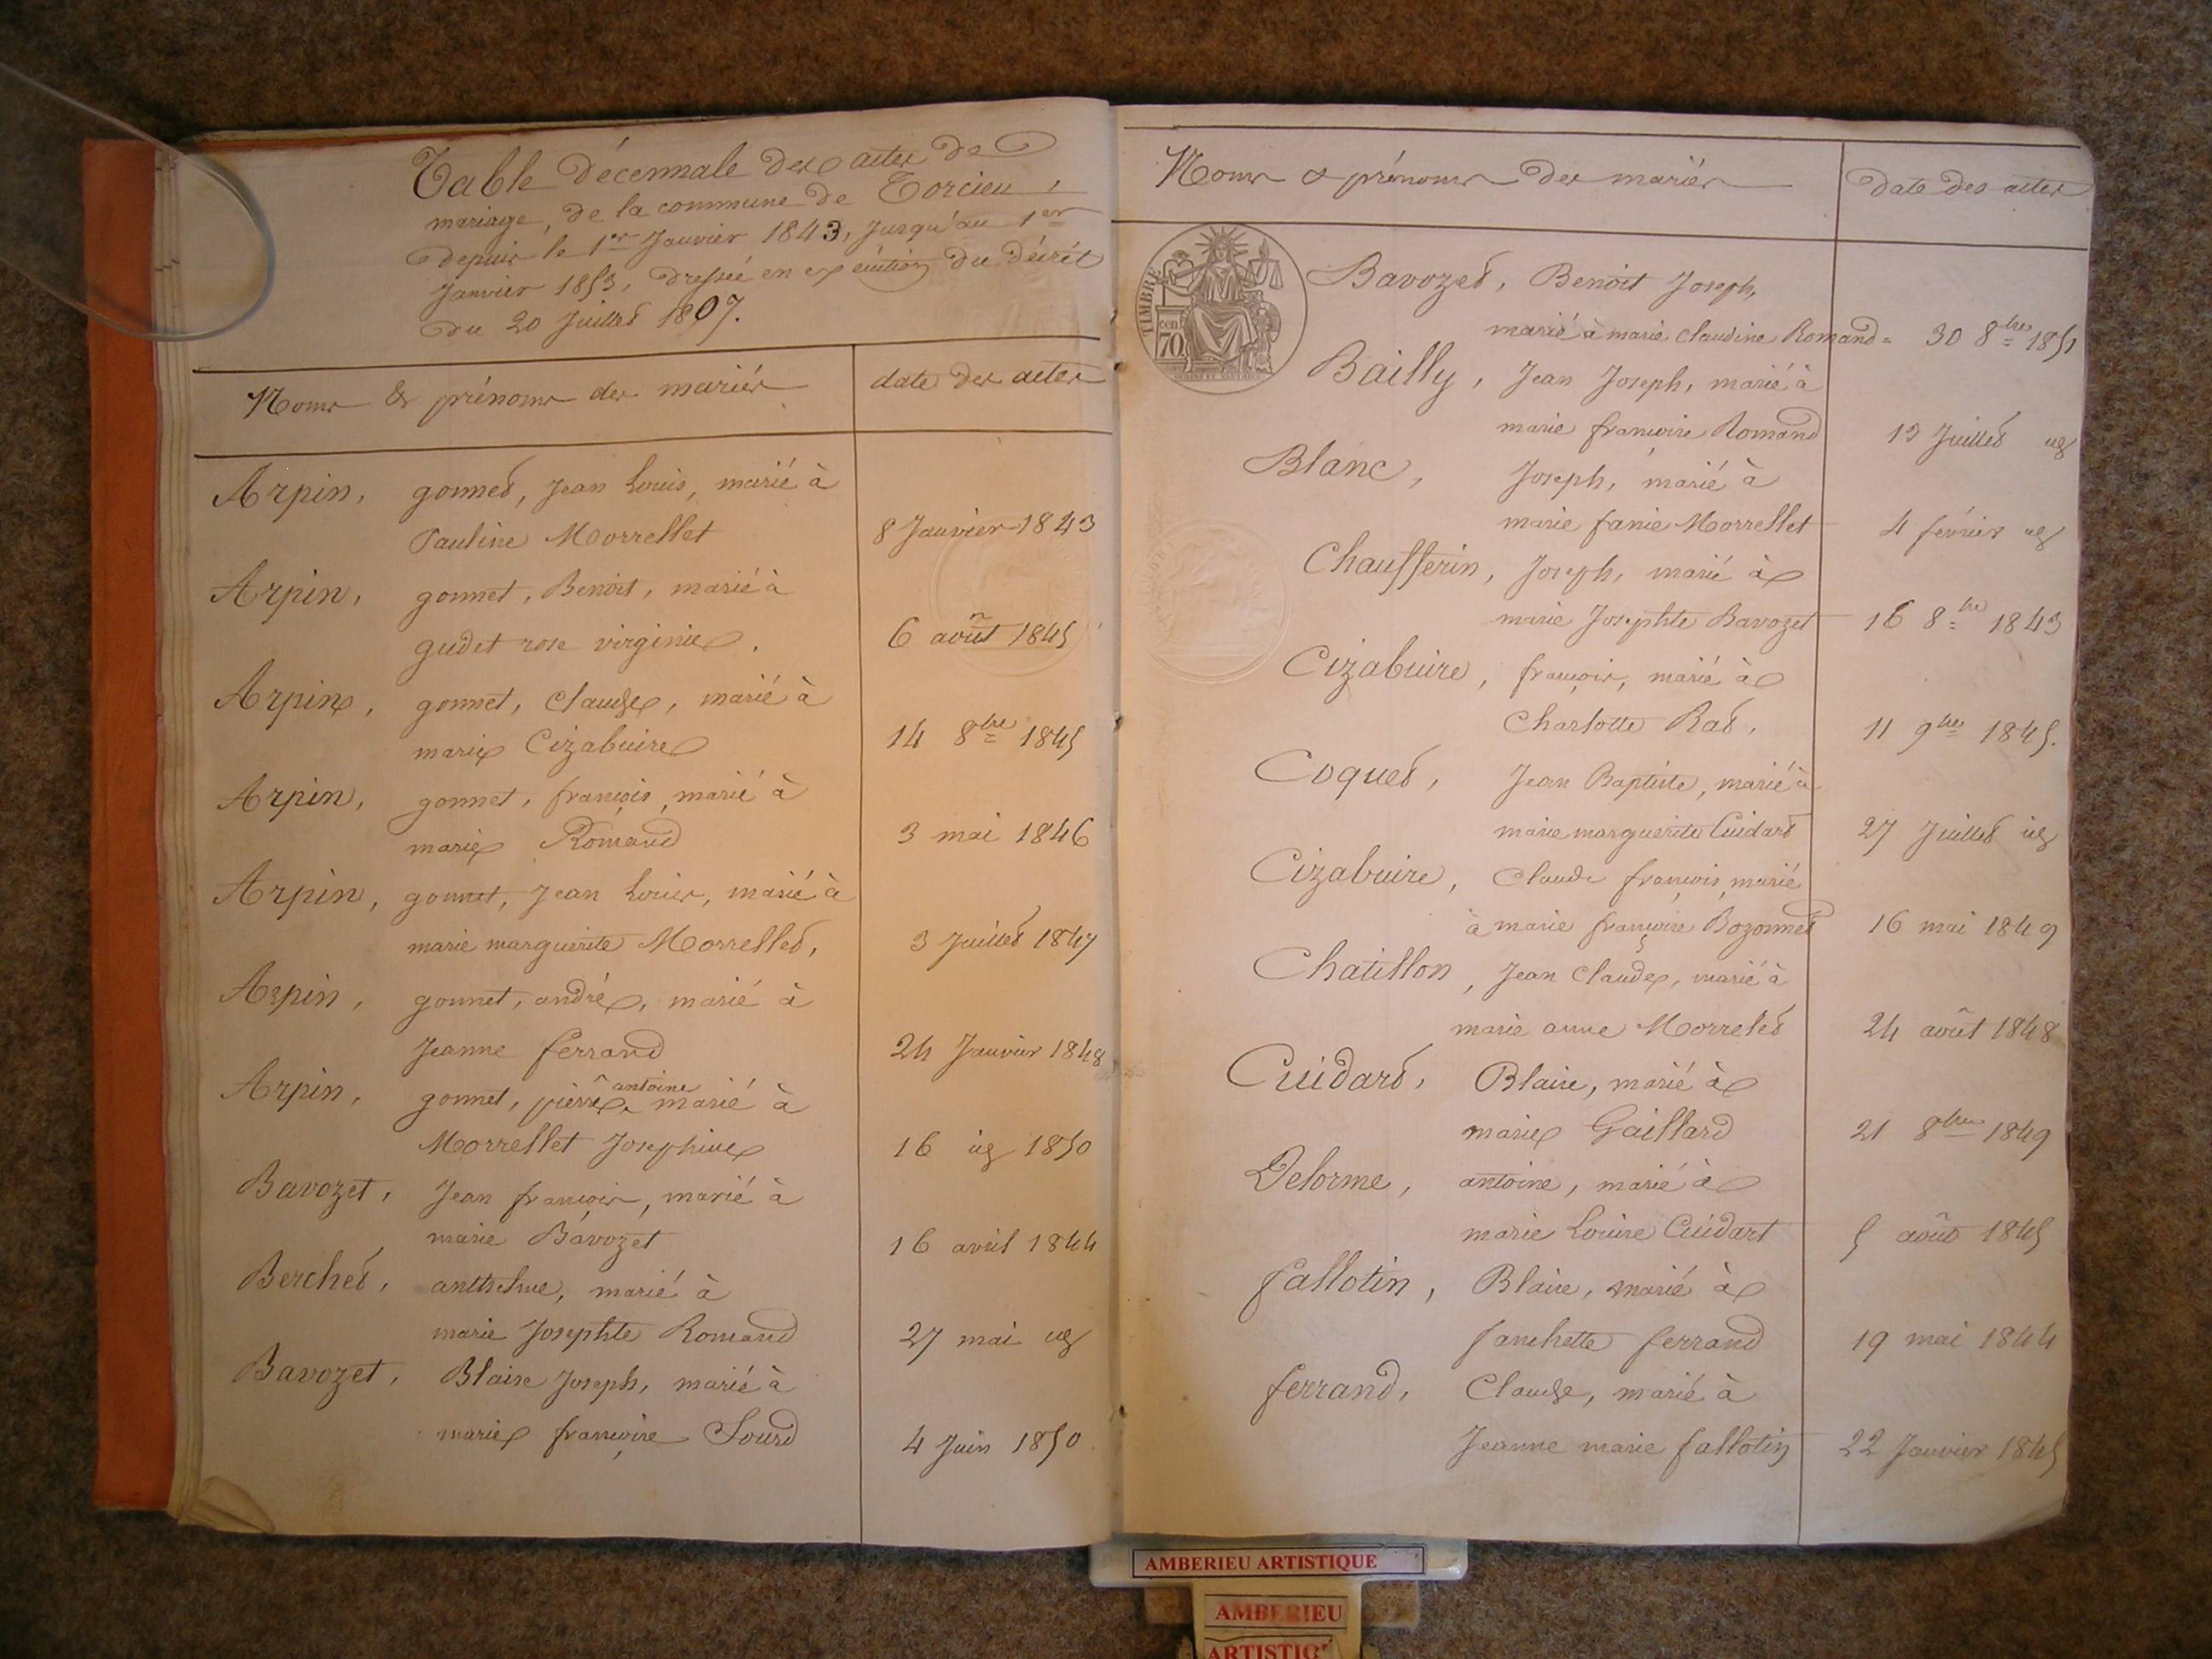 Table décennale des actes de
mariage, de la commune de Torcieu,
depuis le 1er Janvier 1843, jusqu'au 1er
Janvier 1853, dressée en exécution du décrét
du 20 Juillet 1807.
Noms & prénoms des mariés
date des actes
Arpin, gonnet, Jean Louis, marié à
Pauline Morrellet 8 Janvier 1843
Arpin, gonnet, Benoit, marié à
gudet rose virginie. 6 août 1845
Arpin, gonnet, Claude, marié à
marie Cizabuire 14 8bre 1845
Arpin, gonnet, françois, marié à
marie Romand 3 mai 1846
Arpin, gonnet, Jean Louis, marié à
marie marguerite Morrellet, 3 Juillet 1847
Arpin, gonnet, andré, marié à
Jeanne ferrand 24 Janvier 1848
Arpin, gonnet, pierre antoine marié à
Morrellet Josephine 16 1850
Bavozet, Jean françois, marié à
marie Bavozet 16 avril 1844
Berchet, anthelme, marié à
marie Josephte Romand 27 mai
Bavozet, Blaise Joseph, marié à
marie françoise Sourd 4 Juin 1850
Noms & prénoms des mariés
date des actes
TIMBRE
70 cen
Bavozet, Benoit Joseph,
marié à marie Claudine Romand = 30 8bre 1851
Bailly, Jean Joseph, marié à
marie françoise Romand 13 Juillet
Blanc, Joseph, marié à
marie fanie Morrellet 4 février
Chaufferin, Joseph, marié à
marie Josephte Bavozet 16 8bre 1843
Cizabuire, françois, marié à
Charlotte Rat, 11 9bre 1845.
Coquet, Jean Baptiste, marié à
marie marguerite Cuidard 27 Juillet
Cizabuire, Claude françois, marié
à marie françoise Bozonnet 16 mai 1849
Chatillon, Jean Claude, marié à
marie anne Morrelet 24 août 1848
Cuidard, Blaise, marié à
marie Gaillard 21 8bre 1849
Delorme, antoine, marié à
marie Louise Cuidart 5 août 1845
fallotin, Blaise, marié à
fanchette ferrand 19 mai 1844
ferrand, Claude, marié à
Jeanne marie fallotin 22 Janvier 1845
AMBERIEU ARTISTIQUE
AMBERIEU
ARTISTIQ